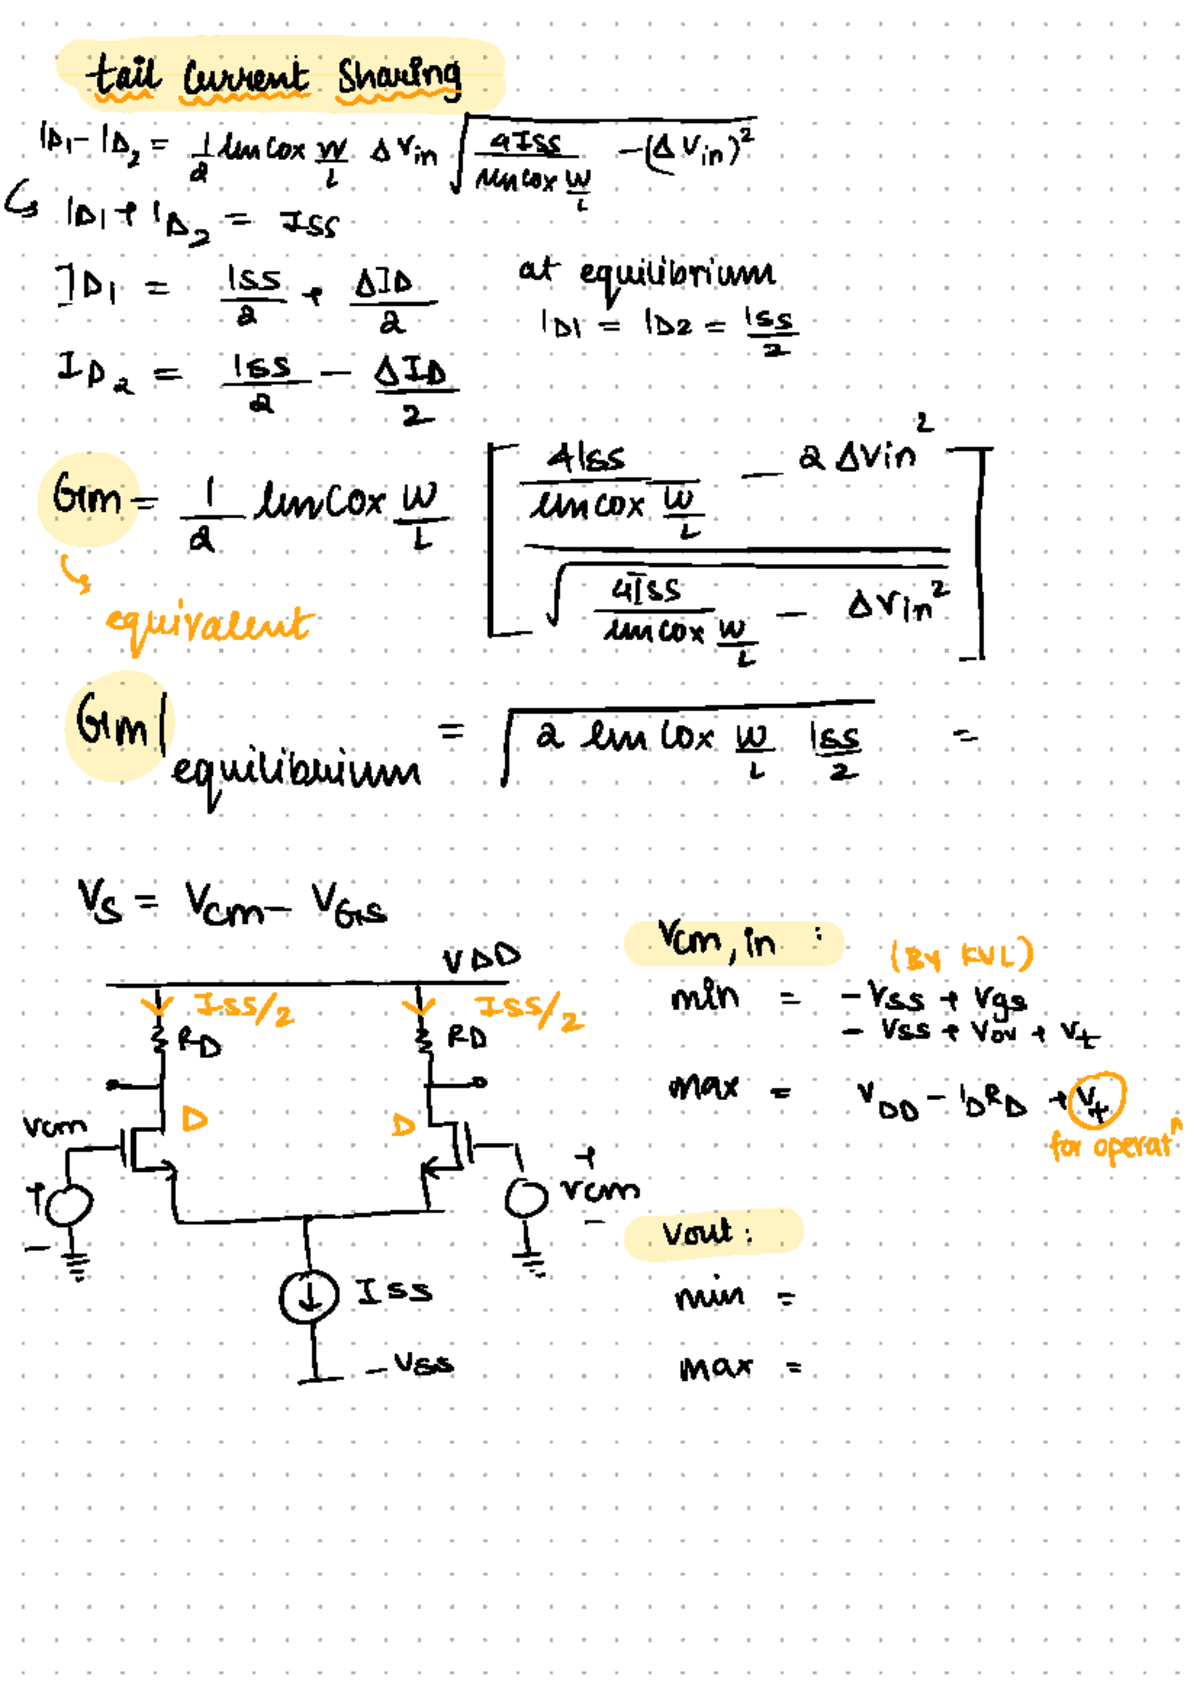 tail Current Sharing
ID1 - ID2 = 1/2 μnCox W/L ΔVin √(4ISS/(μnCox W/L) - (ΔVin)²)
↳ ID1 + ID2 = ISS
ID1 = ISS/2 + ΔID/2
at equilibrium
ID1 = ID2 = ISS/2
ID2 = ISS/2 - ΔID/2
Gm = 1/2 μnCox W/L [ (4ISS/(μnCox W/L) - 2ΔVin²) / √(4ISS/(μnCox W/L) - ΔVin²) ]
equivalent
Gm|equilibrium = √(2 μnCox W/L ISS/2) =
VS = Vcm - VGS
VDD
ISS/2
ISS/2
RD
RD
D
D
Vcm
+
-
+
Vcm
-
ISS
-VSS
Vcm, in :
(By KVL)
min = -VSS + Vgs
- VSS + Vov + Vt
max = VDD - IDRD + Vt
for operatⁿ
Vout :
min =
max =